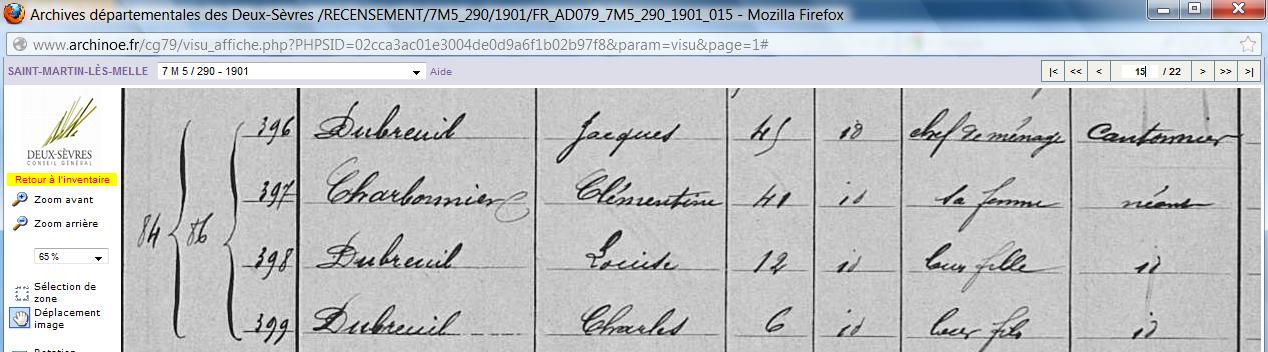 Archives départementales des Deux-Sèvres /RECENSEMENT/7M5_290/1901/FR_AD079_7M5_290_1901_015 - Mozilla Firefox
www.archinoe.fr/cg79/visu_affiche.php?PHPSID=02cca3ac01e3004de0d9a6f1b02b97f8&param=visu&page=1#
SAINT-MARTIN-LÈS-MELLE 7 M 5 / 290 - 1901 Aide |< << < 15 / 22 > >> >|
DEUX-SÈVRES
CONSEIL GÉNÉRAL
Retour à l'inventaire
Zoom avant
Zoom arrière
65 %
Sélection de
zone
Déplacement
image
Rotation
84 86
396 Dubreuil Jacques 45 id chef de ménage Cantonnier
397 Charbonnier Clémentine 41 id sa femme néant
398 Dubreuil Louise 12 id leur fille id
399 Dubreuil Charles 6 id leur fils id